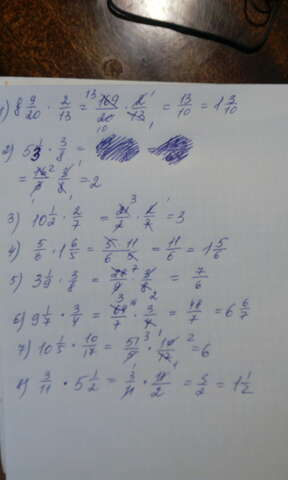 1) 8 9/20 · 2/13 = 169/20 · 2/13 = 13/10 = 1 3/10
2) 5 1/3 · 3/8 =
= 16/3 · 3/8 = 2
3) 10 1/2 · 2/7 = 21/2 · 2/7 = 3
4) 5/6 · 1 6/5 = 5/6 · 11/5 = 11/6 = 1 5/6
5) 3 1/9 · 3/8 = 28/9 · 3/8 = 7/6
6) 9 1/7 · 3/4 = 64/7 · 3/4 = 48/7 = 6 6/7
7) 10 1/5 · 10/17 = 51/5 · 10/17 = 6
8) 3/11 · 5 1/2 = 3/11 · 11/2 = 3/2 = 1 1/2